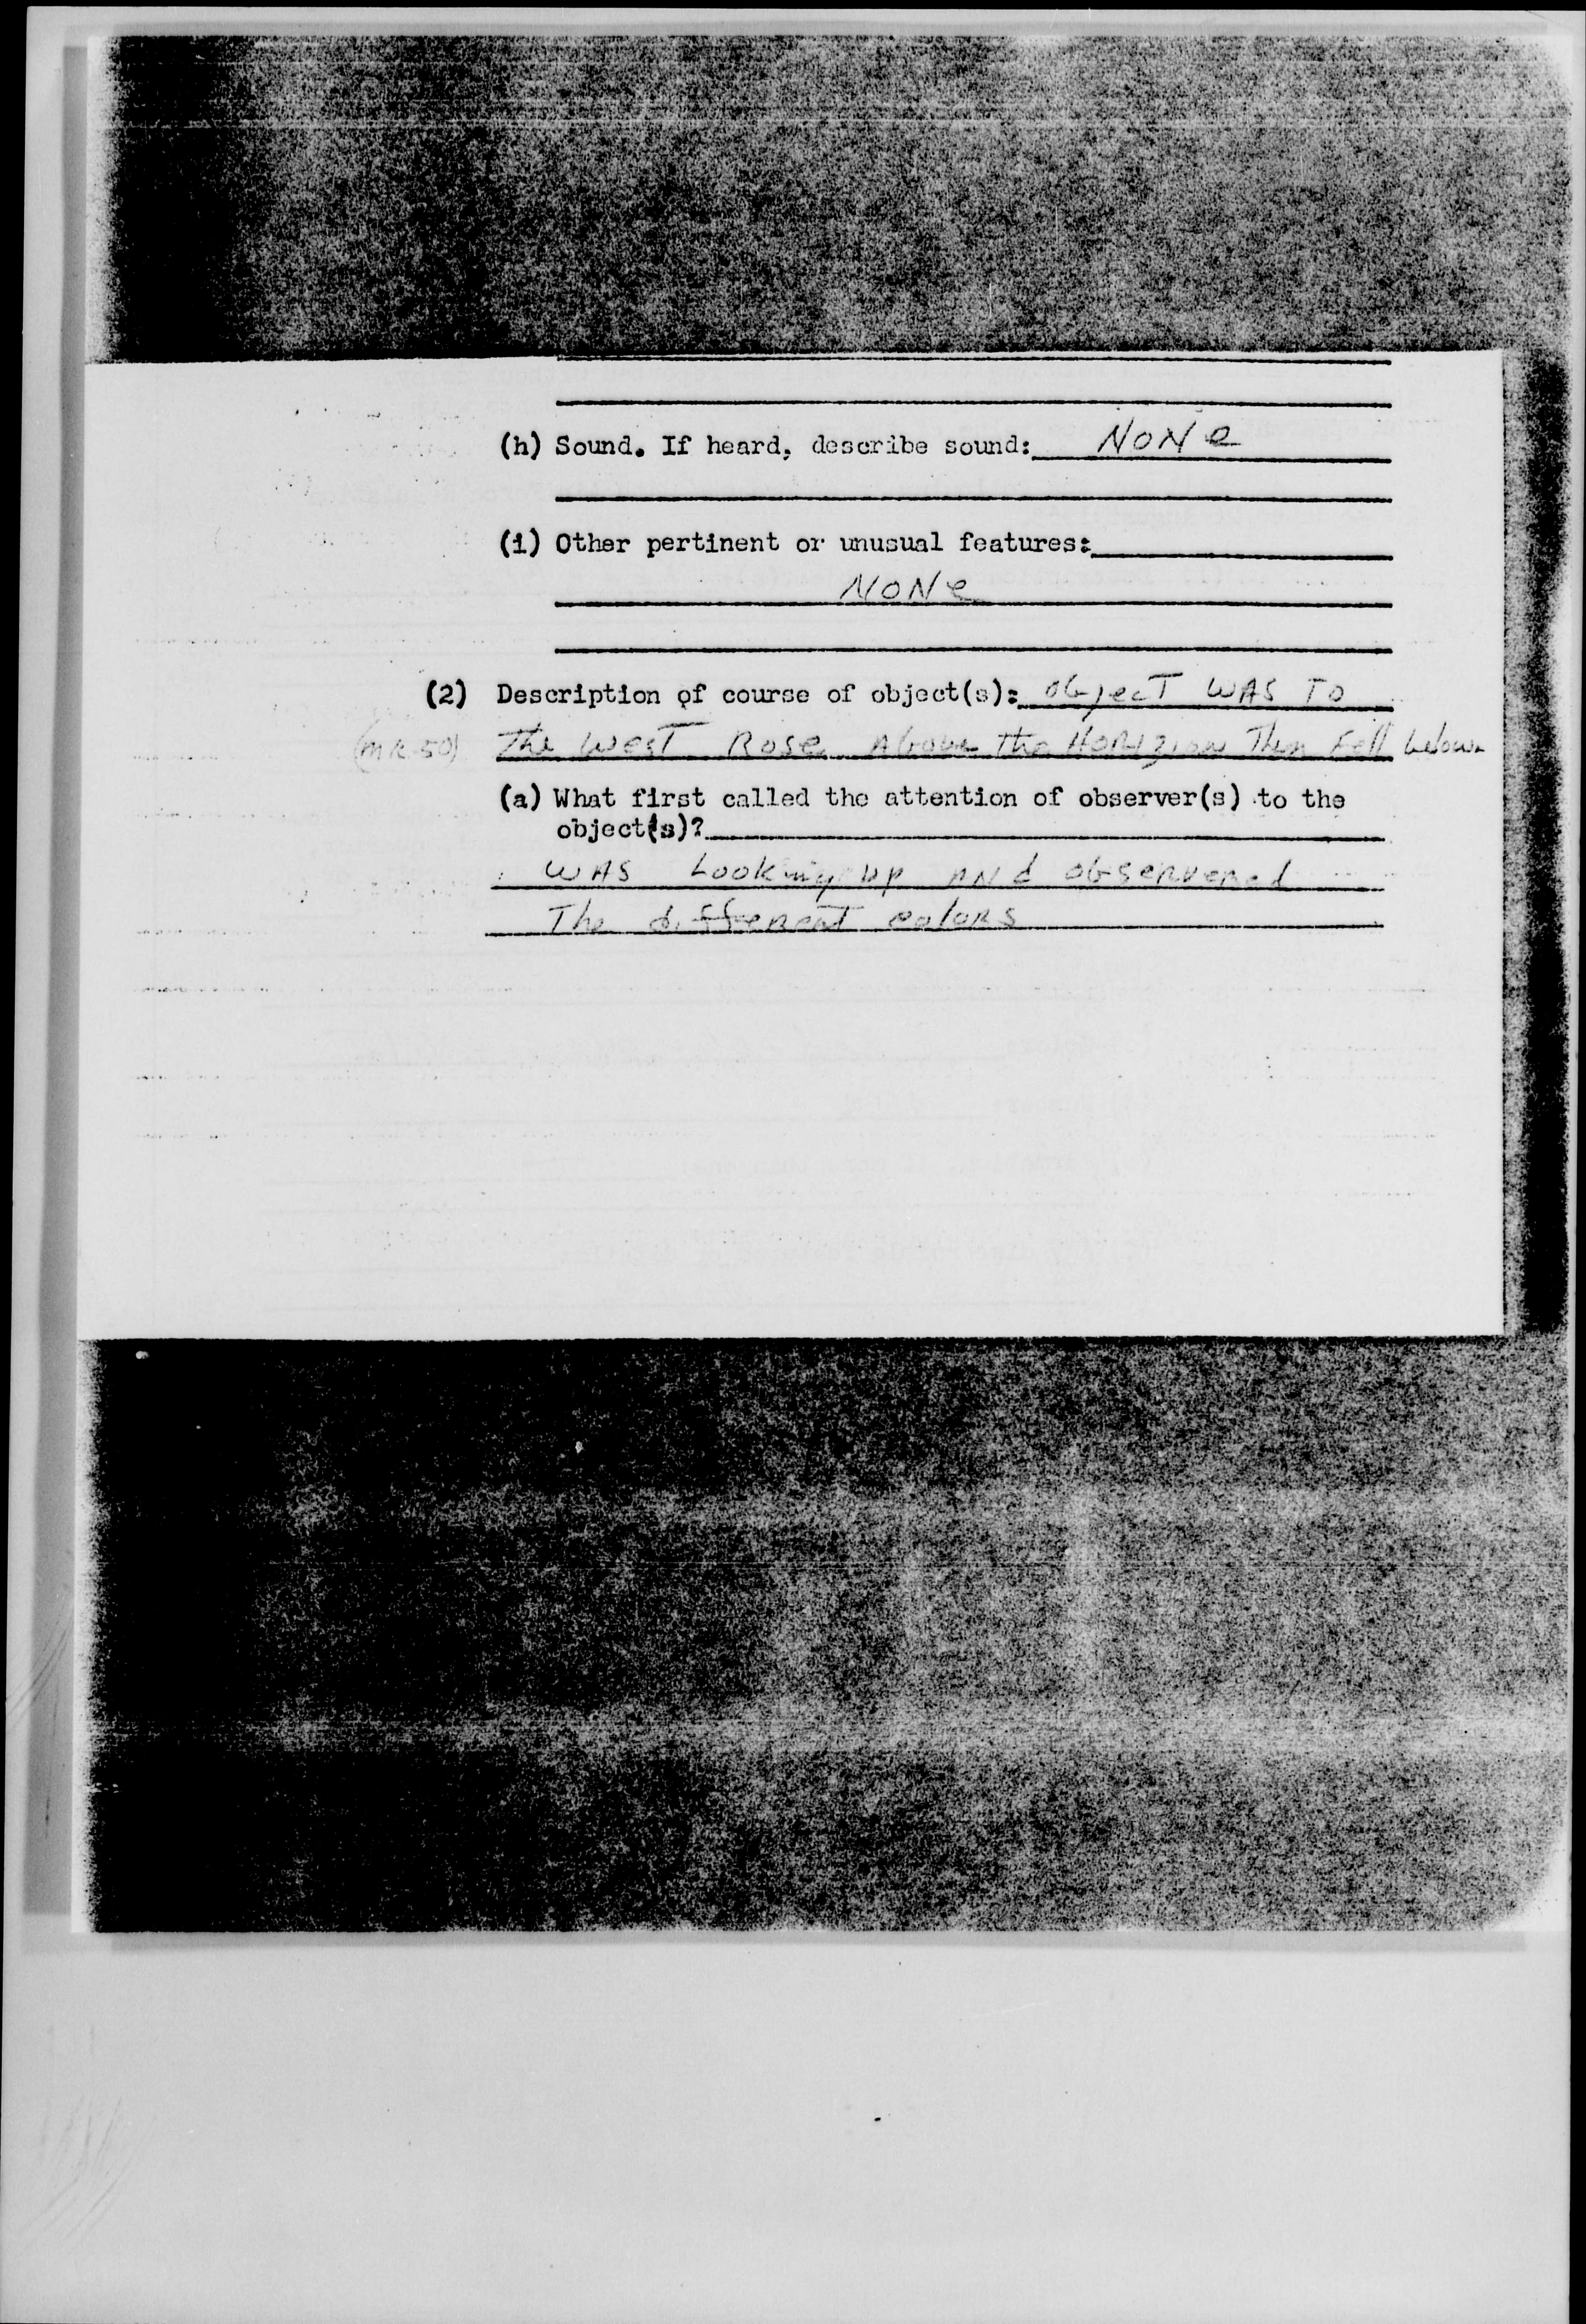 (h) Sound. If heard, describe sound: NoNe
(i) Other pertinent or unusual features:
NoNe
(2) Description of course of object(s): object WAS To
The West Rose Above the HoRIzion Then Fell below
(a) What first called the attention of observer(s) to the
object(s)?
WAS Looking up ANd obserVered
The differeNT colors